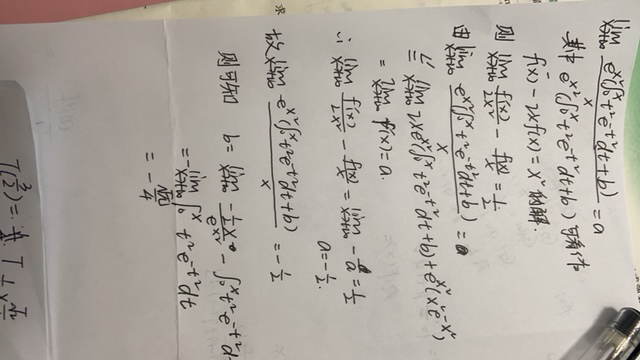 lim x→+∞ e^{x²}(∫₀^x t²e^{-t²}dt+b)/x = a
其中 e^{x²}(∫₀^x t²e^{-t²}dt+b) 可看作
f'(x) - 2xf(x) = x² 的解.
则 lim x→+∞ f'(x)/2x² - f(x)/x = 1/2
由 lim x→+∞ e^{x²}(∫₀^x t²e^{-t²}dt+b)/x = a
lim x→+∞ 2xe^{x²}(∫₀^x t²e^{-t²}dt+b) + e^{x²}(x²e^{-x²})
= lim x→+∞ f'(x) = a.
∴ lim x→+∞ f'(x)/2x² - f(x)/x = lim x→+∞ -a = 1/2
a = -1/2.
故 lim x→+∞ e^{x²}(∫₀^x t²e^{-t²}dt+b)/x = -1/2
则可知 b = lim x→+∞ -½x/e^{x²} - ∫₀^x t²e^{-t²}d
= -lim x→+∞ ∫₀^x t²e^{-t²}dt
= -√π/4